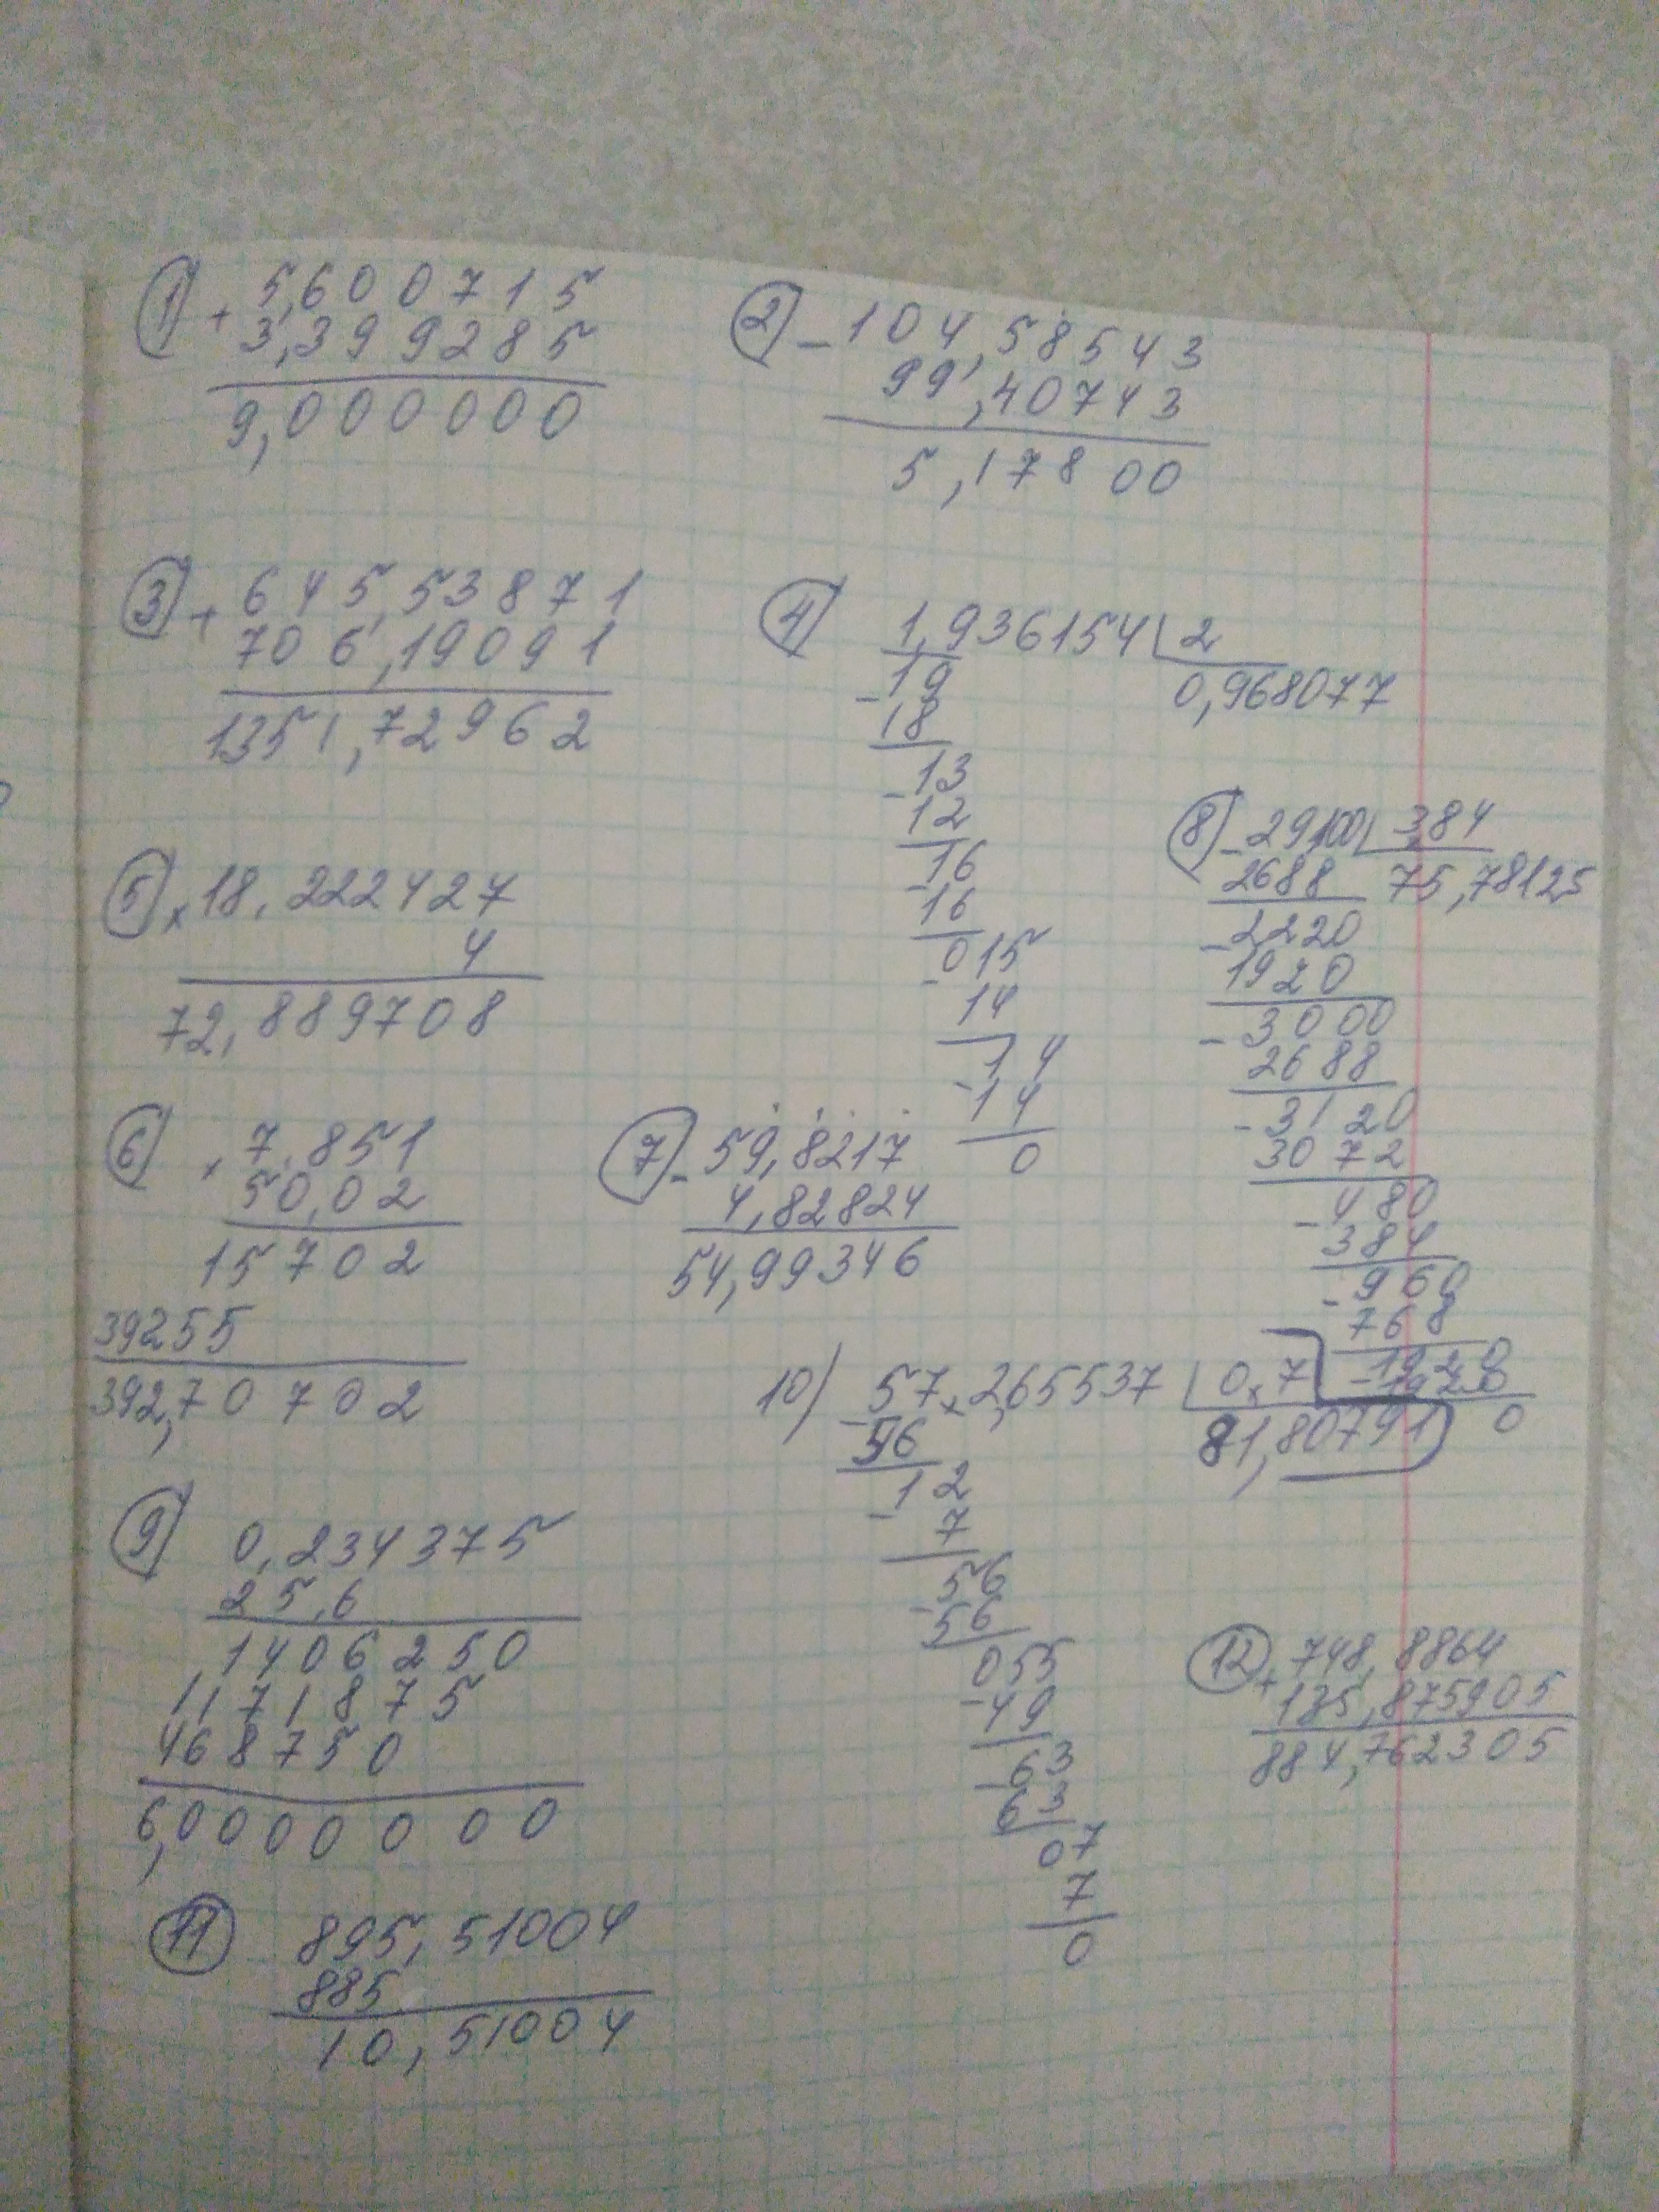 1) + 5,600715
3,399285
9,000000
2) - 104,58543
99,40743
5,17800
3) + 645,53871
706,19091
1351,72962
4) 1,936154 | 2
0,968077
19
- 18
- 13
12
- 16
16
- 015
14
- 14
14
0
5) x 18,222427
4
72,889708
6) x 7,851
50,02
15702
39255
392,70702
7) - 59,8217
4,82824
54,99346
8) - 29100 | 384
2688 75,78125
- 2220
1920
- 3000
2688
- 3120
3072
- 480
384
- 960
768
- 1920
1920
0
9) 0,234375
25,6
1406250
1171875
468750
6,0000000
10) 57,2,65537 | 0,7
- 56 81,80791
- 12
7
- 56
56
- 055
49
- 63
63
07
7
0
11) 895,51004
885
10,51004
12) + 748,8864
135,875905
884,762305